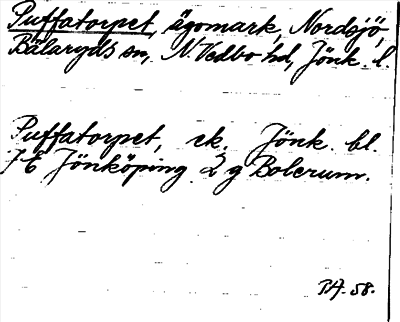 Puffatorpet, ägomark, Nordsjö,
Bälaryds sn, N. Vedbo hd, Jönk. l.
Puffatorpet, ek. Jönk. bl.
7 E Jönköping 2 g Bolerum.
58.